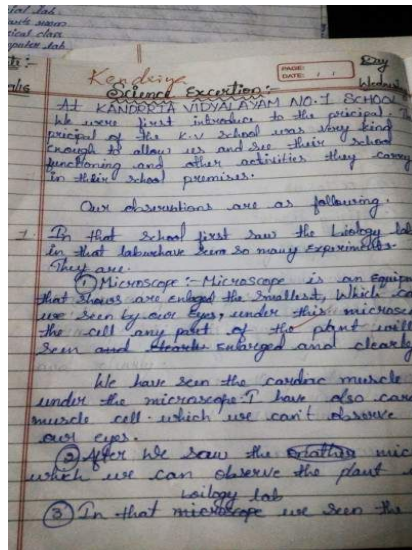 ial lab.
ical class
mputer lab
PAGE:
DATE:
Day
Kendriya
Science Excertion:-
At KANDERTA VIDYALAYAM NO.1 SCHOOL
We were first introduce to the pricipal.
pricipal of the K.V school was very kind
enough to allow us and see their school
functioning and other activities they carry
in their school premises.
Our observations are as following.
1. In that school first saw the biology lab
in that labwehave seen so many experiments.
They are.
① Microscope :- Microscope is an Equipm
that shows are enlaged the smallest, Which ca
use seen by our Eyes, under this microsc
the cell any part of the plant will
seen and clearly Enlarged and clearly
We have seen the cardiac muscle
under the microscope. I have also card
muscle cell. which we can't observe
our eyes.
② After We saw the mic
which we can observe the plant
biology lab
③ In that microscope we seen the